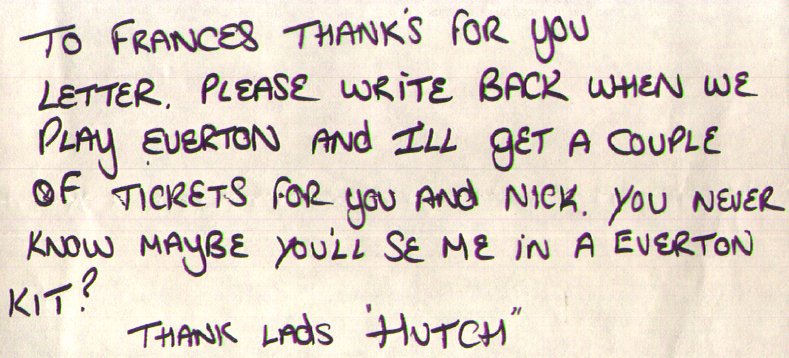 TO FRANCES THANK'S FOR YOU
LETTER. PLEASE WRITE BACK WHEN WE
PLAY EVERTON AND ILL GET A COUPLE
OF TICKETS FOR YOU AND NICK. YOU NEVER
KNOW MAYBE YOU'LL SE ME IN A EVERTON
KIT?
THANK LADS "HUTCH"